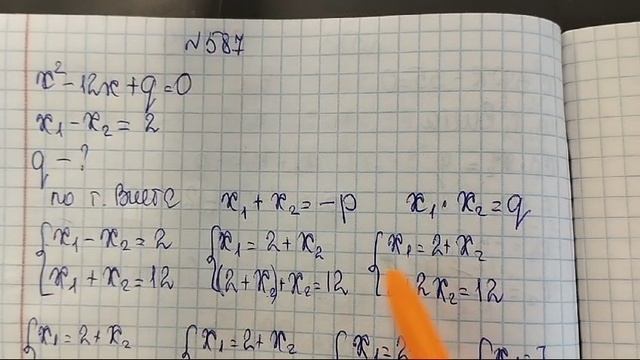 №587
x² - 12x + q = 0
x₁ - x₂ = 2
q - ?
по т. Виета x₁ + x₂ = -p x₁ · x₂ = q
{x₁ - x₂ = 2 {x₁ = 2 + x₂ {x₁ = 2 + x₂
{x₁ + x₂ = 12 {(2 + x₂) + x₂ = 12 { 2x₂ = 12
{x₁ = 2 + x₂ {x₁ = 2 + x₂ {x₁ = 2